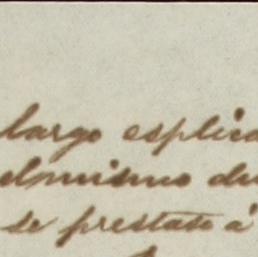 largo esplica
el mismo du
se prestato á